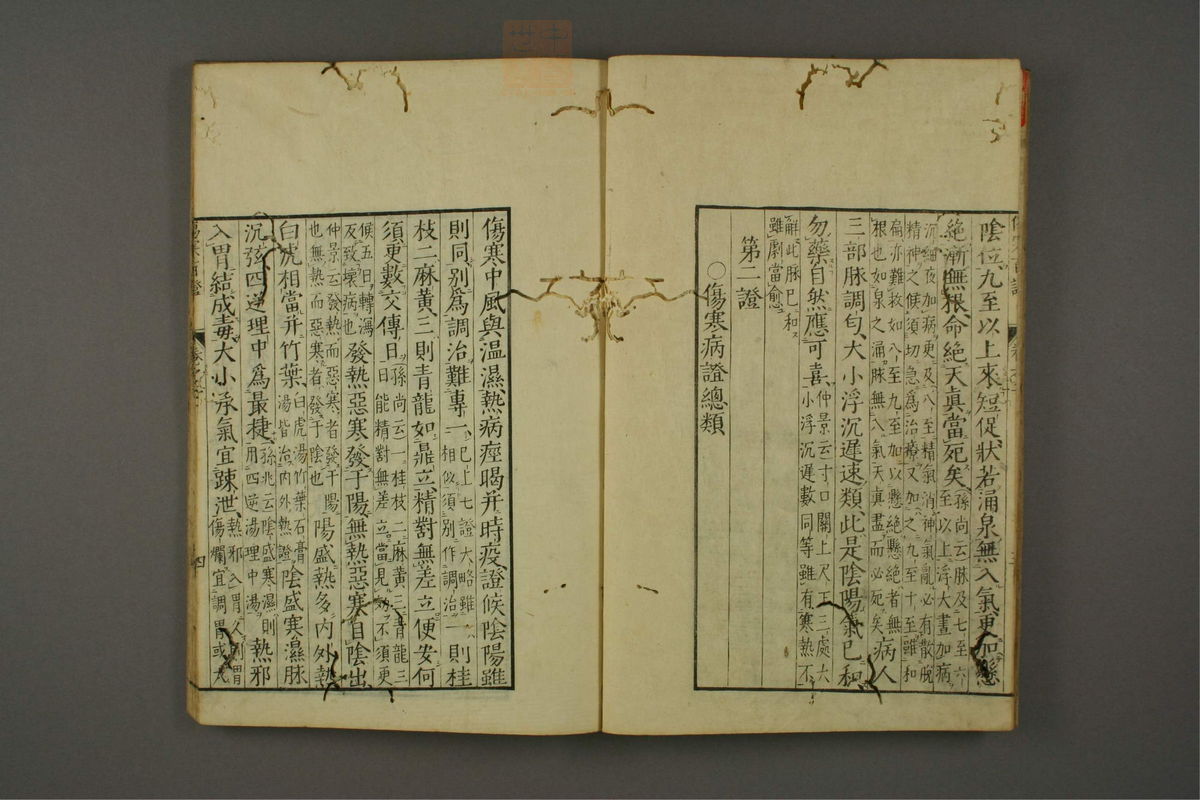 陰位九至以上來短促狀若涌泉無入氣更加懸
絕漸無根命絕天真當死矣孫尚云脉及七至六
至以上浮大晝加病
沉細夜加病更及八至精氣消神氣亂必有散脫
精神之候須切急為治療又加之九至十至雖和
扁亦難救如八至九至加以懸絕懸絕者無
根也如泉之涌脉無入氣天真盡而必死矣病人
三部脉調勻大小浮沉遲速類此是陰陽氣已和
勿藥自然應可喜仲景云寸口關上尺下三處大
小浮沉遲數同等雖有寒熱不
解此脉已和
雖劇當愈
第二證
○傷寒病證總類
傷寒中風與温濕熱病痙暍并時疫證候陰陽雖
則同別為調治難專一已上七證大略雖
相似須別作調治一則桂
枝二麻黃三則青龍如鼎立精對無差立便安何
須更數交傳日孫尚云一桂枝二麻黃三青龍三
日能精對無差立當見効不須更
候五日轉瀉
及致壞病也發熱惡寒發于陽無熱惡寒自陰出
仲景云發熱而惡寒者發于陽
也無熱而惡寒者發于陰也陽盛熱多內外熱
白虎相當并竹葉白虎湯竹葉石膏
湯皆治內外熱證陰盛寒濕脉
沉弦四逆理中為最㨗孫兆云陰盛寒濕則
用四逆湯理中湯熱邪
入胃結成毒大小承氣宜踈泄熱邪入胃久則胃
傷爛宜調胃或大
四